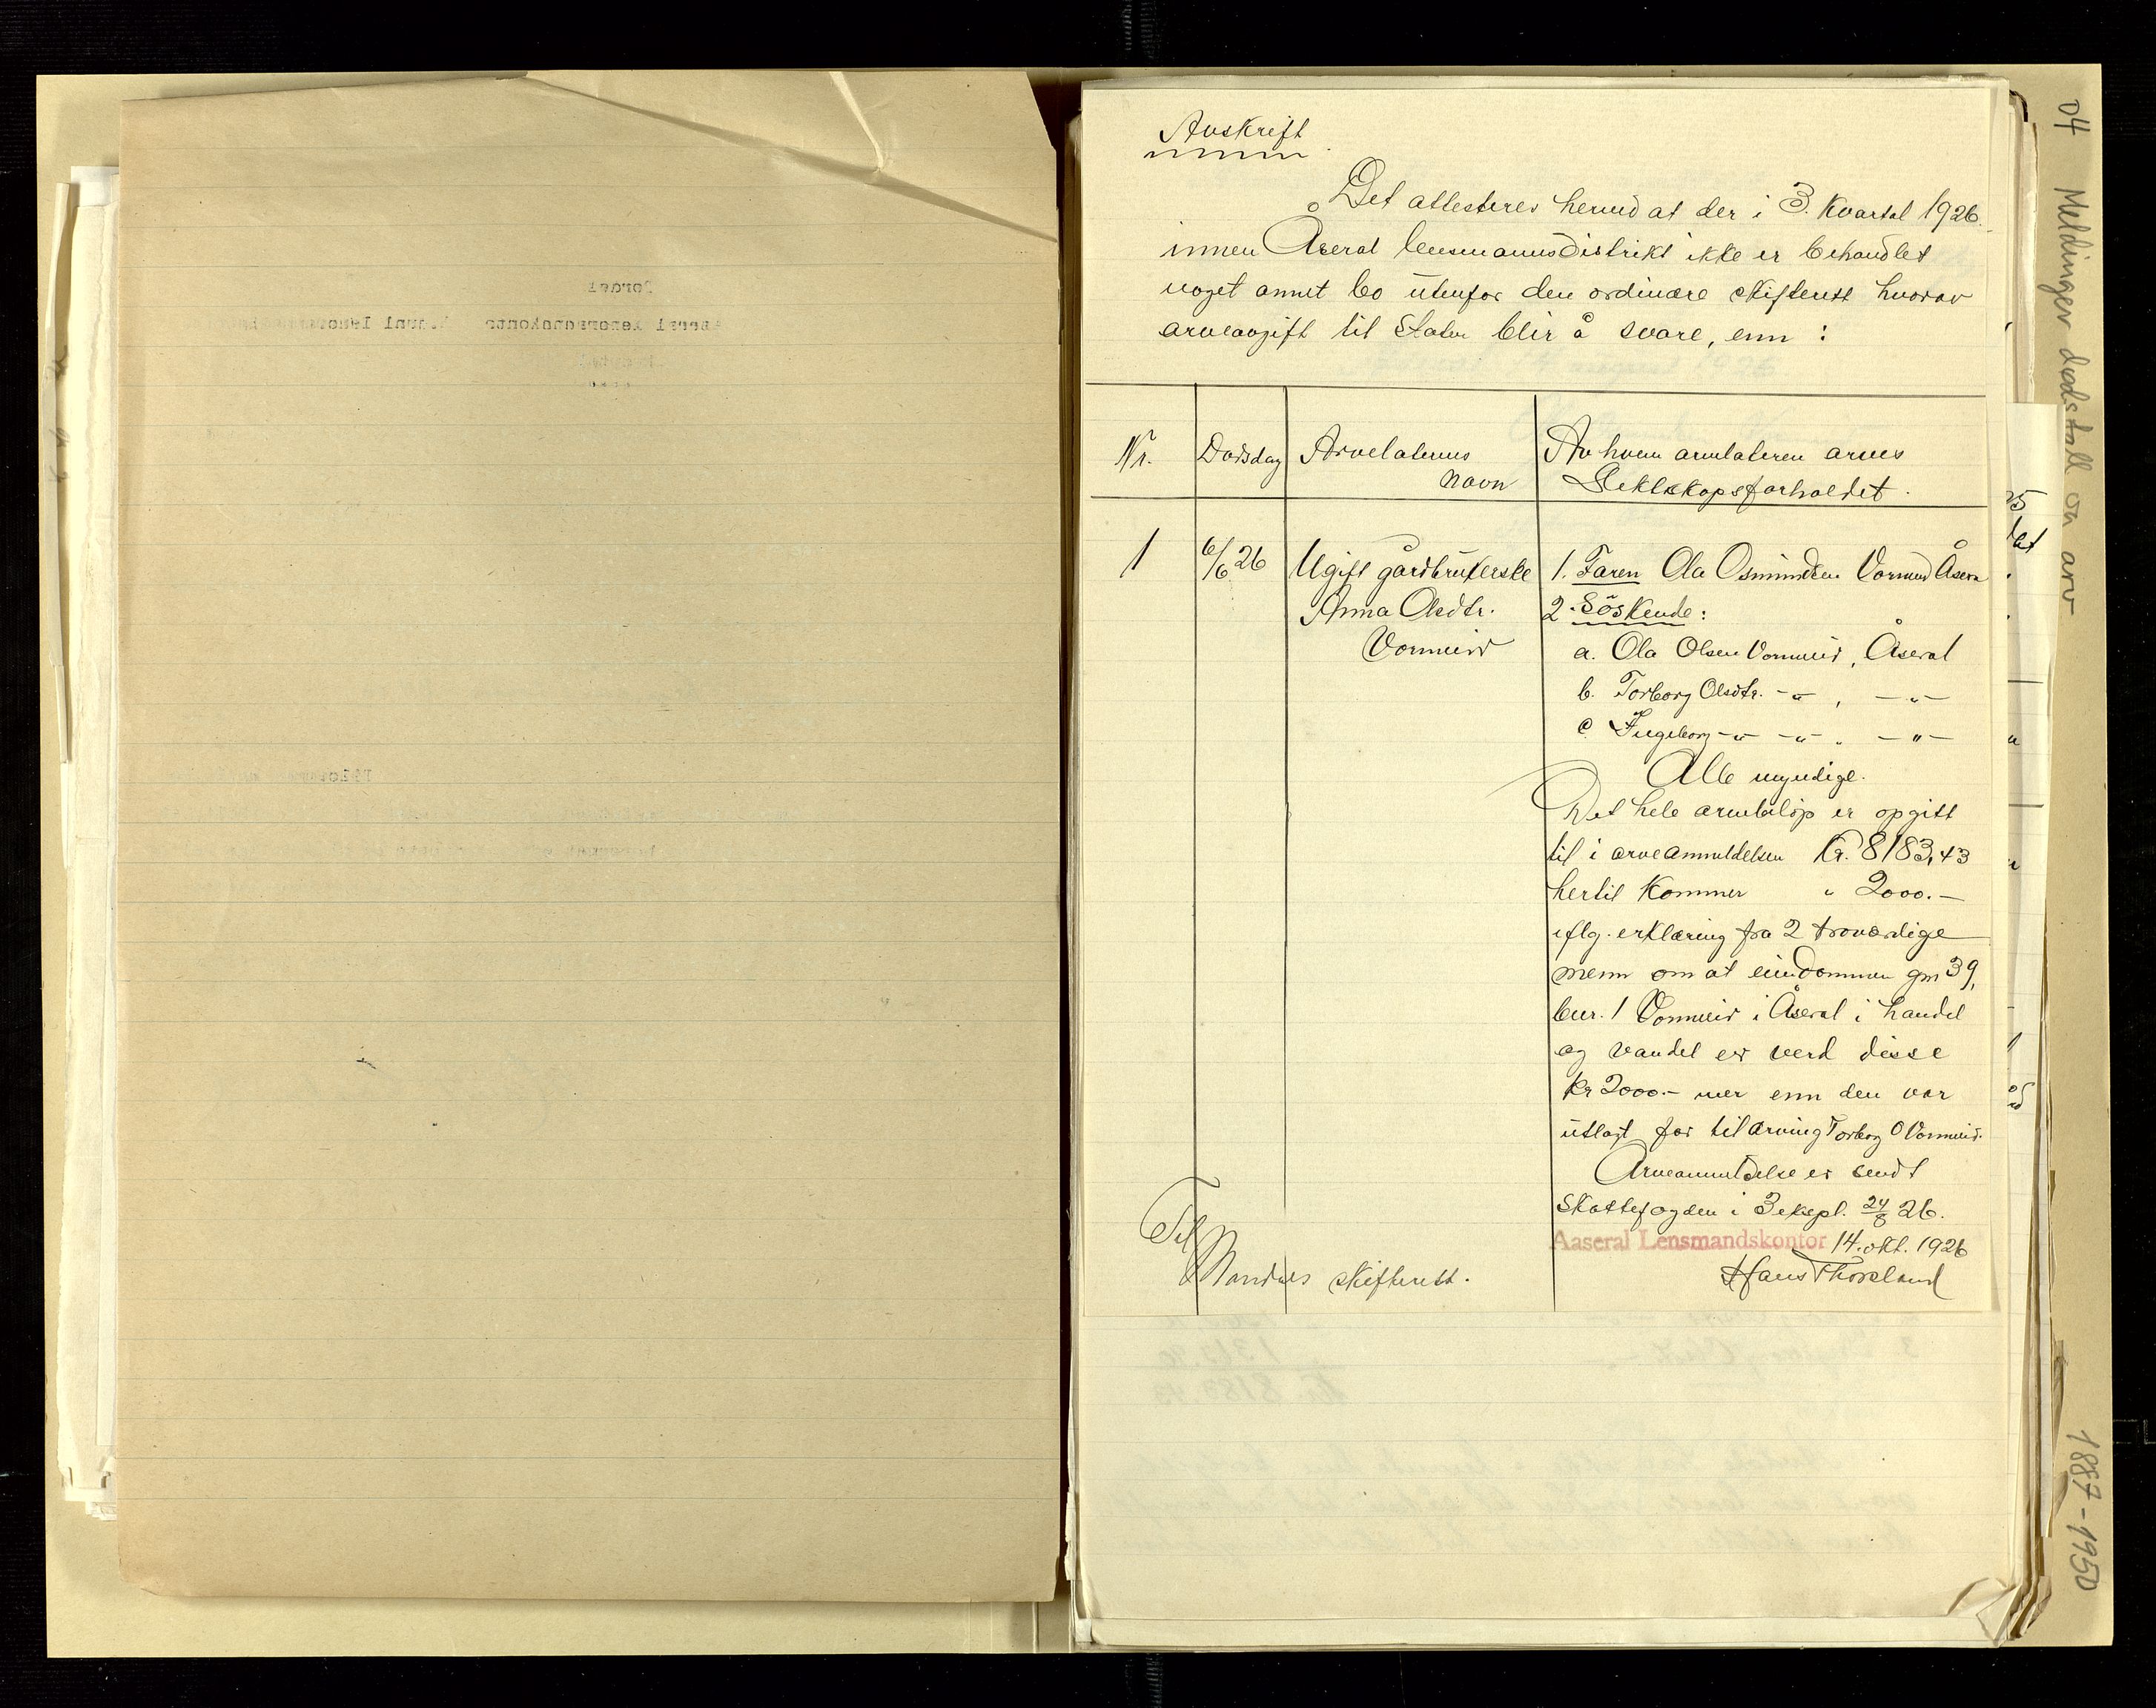 Avskrift
Det attesteres herved at der i 3. Kvartal 1926
innen Åseral lensmannsdistrikt ikke er behandlet
noget annet bo utenfor den ordinære skifterett hvorav
arveavgift til Staten blir å svare, enn :
Nr.
Dødsdag
Arvelaterens
navn
Av hvem arvelateren arves
Slektskapsforholdet.
1
6/6 26
Ugift gårdbrukerske
Anna Olsdtr.
Vormeid
1. Faren Ola Osmundsen Vormeid Åseral
2. Söskende :
a. Ola Olsen Vormeid, Åseral
b. Torborg Olsdtr. -"- , -"-
c Ingeborg -"- -"- . -"-
Alle myndige.
Det hele arvebeløp er opgitt
til i arveanmeldelsen Kr. 8183,43
hertil Kommer " 2000.-
iflg. erklæring fra 2 troværdige
menn om at eiendommen gnr 39,
bnr. 1 Vormeid i Åseral i handel
og vandel er verd disse
kr 2000.- mer enn den var
utlagt for til arving Torborg O Vormeid.
Arveanmeldelse er sendt
Skattefogden i 3 ekspl. 24/8 26.
Aaseral Lensmandskontor 14. okt. 1926
Hans Thorsland
Til
Mandals skifterett.
04 Meldinger dødsfall og arv
1887-1950